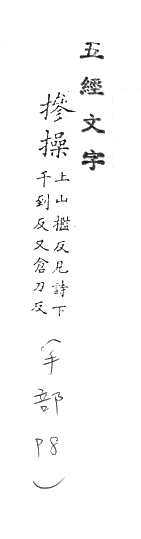 五經文字
摻操上山檻反見詩下
千到反又倉刀反
(手部 P8)